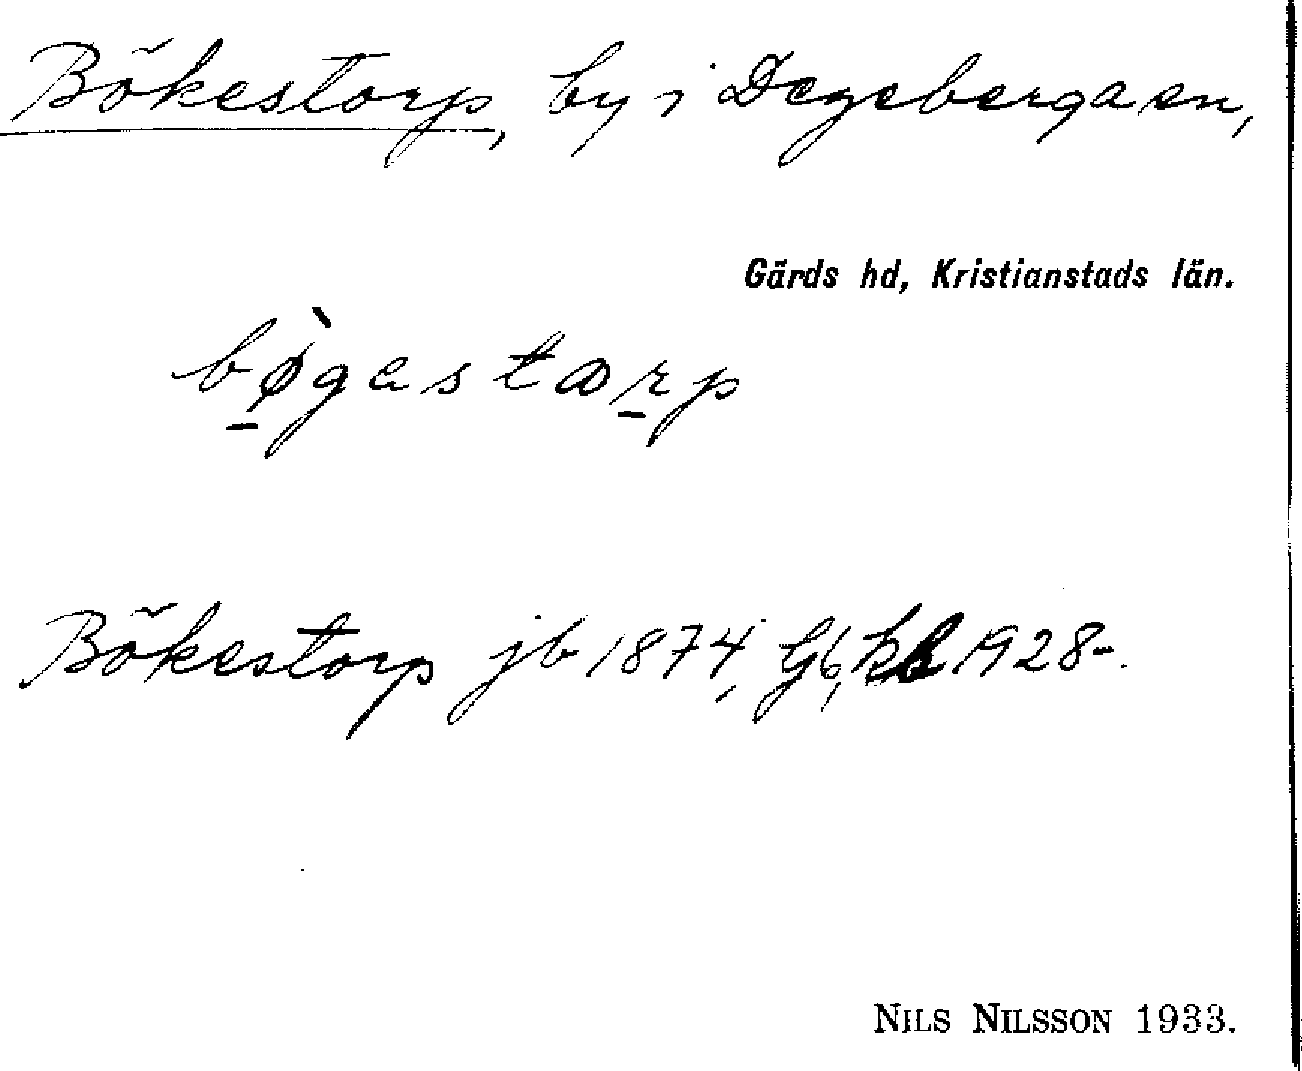 Bökestorp, by i Degeberga sn,
Gärds hd, Kristianstads län.
bø̀gastarp
Bökestorp jb 1874, Gb, kb 1928-.
NILS NILSSON 1933.